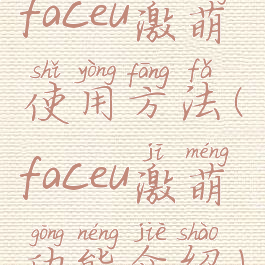 faceu激萌
shǐ yòng fāng fǎ
使用方法(
jī méng
faceu激萌
gōng néng jiè shào
功能介绍)